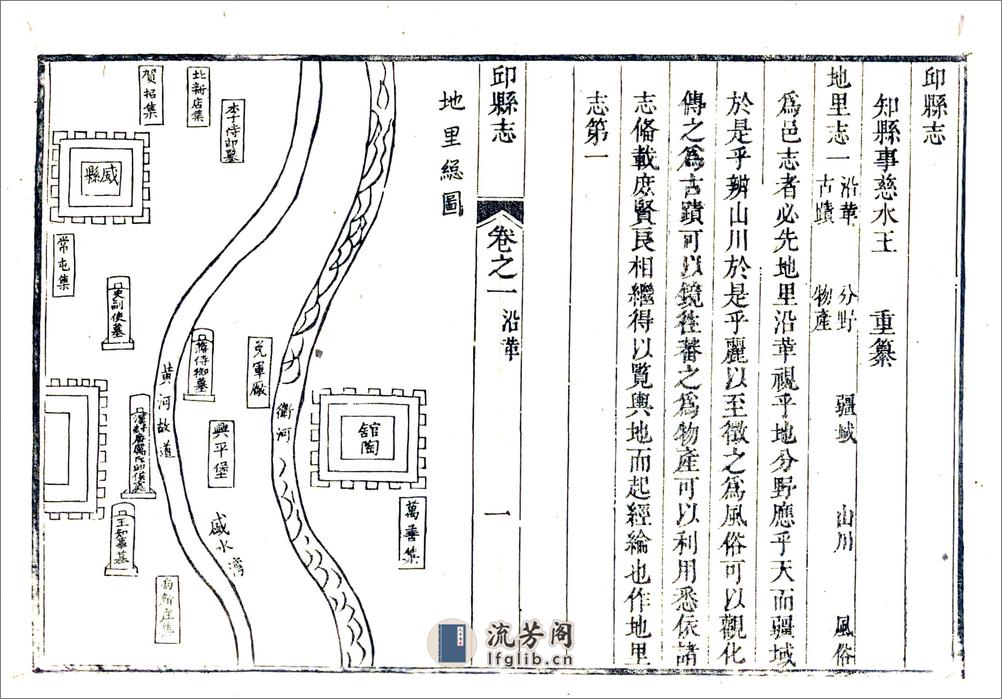 邱縣志
知縣事慈水王 重纂
地里志一 沿革 分野 疆域 山川 風俗
古蹟 物產
爲邑志者必先地里沿革視乎地分野應乎天而疆域
於是乎辨山川於是乎麗以至徵之爲風俗可以觀化
傳之爲古蹟可以鏡徃蕃之爲物產可以利用悉依諸
志俻載庶賢良相繼得以覽輿地而起經綸也作地里
志第一
邱縣志
卷之一 沿革
一
地里總圖
北新店集
賀招集
李千侍郎墓
威縣
常屯集
史副使墓
黃河故道
蔣侍御墓
兔軍廠
衛河
舘陶
興平堡
萬善集
王知事墓
威水灣
流芳阁
lfglib.cn